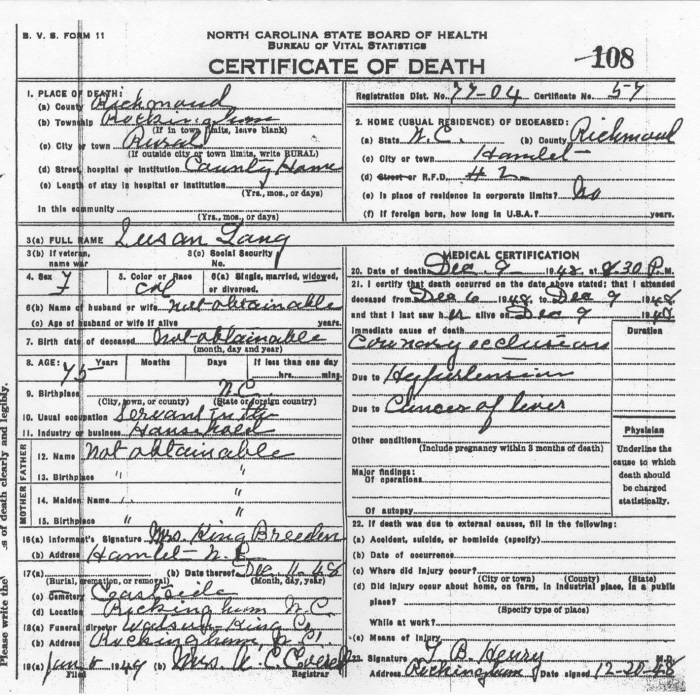 B. V. S. FORM 11
NORTH CAROLINA STATE BOARD OF HEALTH
BUREAU OF VITAL STATISTICS
CERTIFICATE OF DEATH
108
1. PLACE OF DEATH:
(a) County Richmond
(b) Township Rockingham
(If in town limits, leave blank)
(c) City or town Rural
(If outside city or town limits, write RURAL)
(d) Street, hospital or institution County Home
(e) Length of stay in hospital or institution
(Yrs., mos., or days)
In this community
(Yrs., mos., or days)
Registration Dist. No. 77-04 Certificate No. 57
2. HOME (USUAL RESIDENCE) OF DECEASED:
(a) State N.C. (b) County Richmond
(c) City or town Hamlet
(d) Street or R.F.D. #2
(e) Is place of residence in corporate limits? No
(f) If foreign born, how long in U.S.A.? years.
3(a) FULL NAME Susan Lang
3(b) If veteran, name war
3(c) Social Security No.
4. Sex F
5. Color or Race Col
6(a) Single, married, widowed, or divorced.
6(b) Name of husband or wife not obtainable
(c) Age of husband or wife if alive years.
7. Birth date of deceased Not obtainable
(month, day and year)
8. AGE: Years Months Days If less than one day
75 hrs. min.
9. Birthplace N.C.
(City, town, or county) (State or foreign country)
10. Usual occupation Servant
11. Industry or business Household
FATHER
12. Name Not obtainable
13. Birthplace " "
MOTHER
14. Maiden Name " "
15. Birthplace " "
16(a) Informant's Signature Mrs. King Breeden
(b) Address Hamlet N.C.
17(a) (b) Date thereof Dec. 11-48
(Burial, cremation, or removal) (Month, day, year)
(c) Cemetery Eastside
(d) Location Rockingham N.C.
18(a) Funeral director Watson-King Co.
(b) Address Rockingham, N.C.
19(a) Jan 1949 (b) Mrs. N. C.
Filed Registrar
MEDICAL CERTIFICATION
20. Date of death Dec. 9 1948, at 8.30 P.M.
21. I certify that death occurred on the date above stated; that I attended
deceased from Dec 6 1948, to Dec 9 1948
and that I last saw her alive on Dec 9 1948
Immediate cause of death Duration
Coronary occlusion
Due to Hypertension
Due to Cancer of liver
Other conditions
(Include pregnancy within 3 months of death)
Major findings:
Of operations
Of autopsy
Physician
Underline the
cause to which
death should
be charged
statistically.
22. If death was due to external causes, fill in the following:
(a) Accident, suicide, or homicide (specify)
(b) Date of occurrence
(c) Where did injury occur?
(City or town) (County) (State)
(d) Did injury occur about home, on farm, in industrial place, in a public
place?
(Specify type of place)
While at work?
(e) Means of injury
23. Signature T. B. Henry M.D.
Address Rockingham Date signed 12-20-48
Please write the
s of death clearly and legibly.